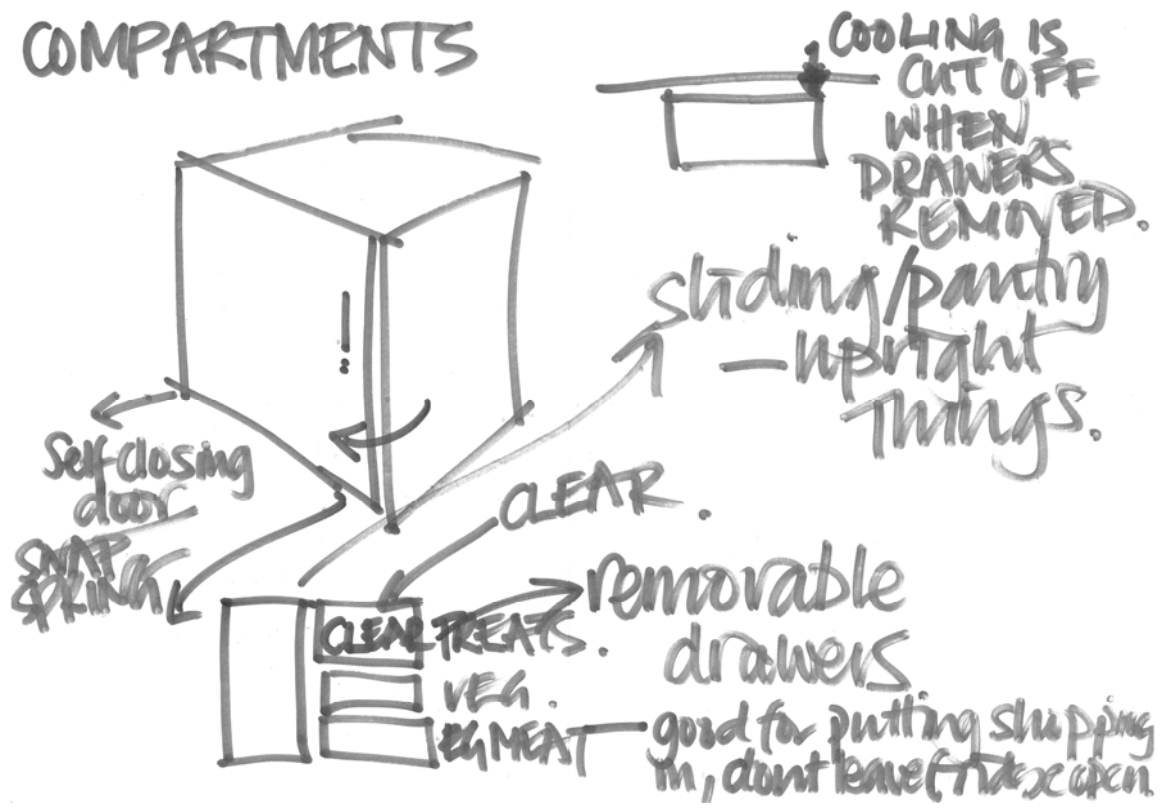 COMPARTMENTS
COOLING IS
CUT OFF
WHEN
DRAWERS
REMOVED.
sliding/pantry
— upright
things.
Self closing
door
SNAP
SPRING
CLEAR.
CLEAR TREATS.
removable
drawers
VEG.
EG MEAT
good for putting shopping
in, dont leave fridge open